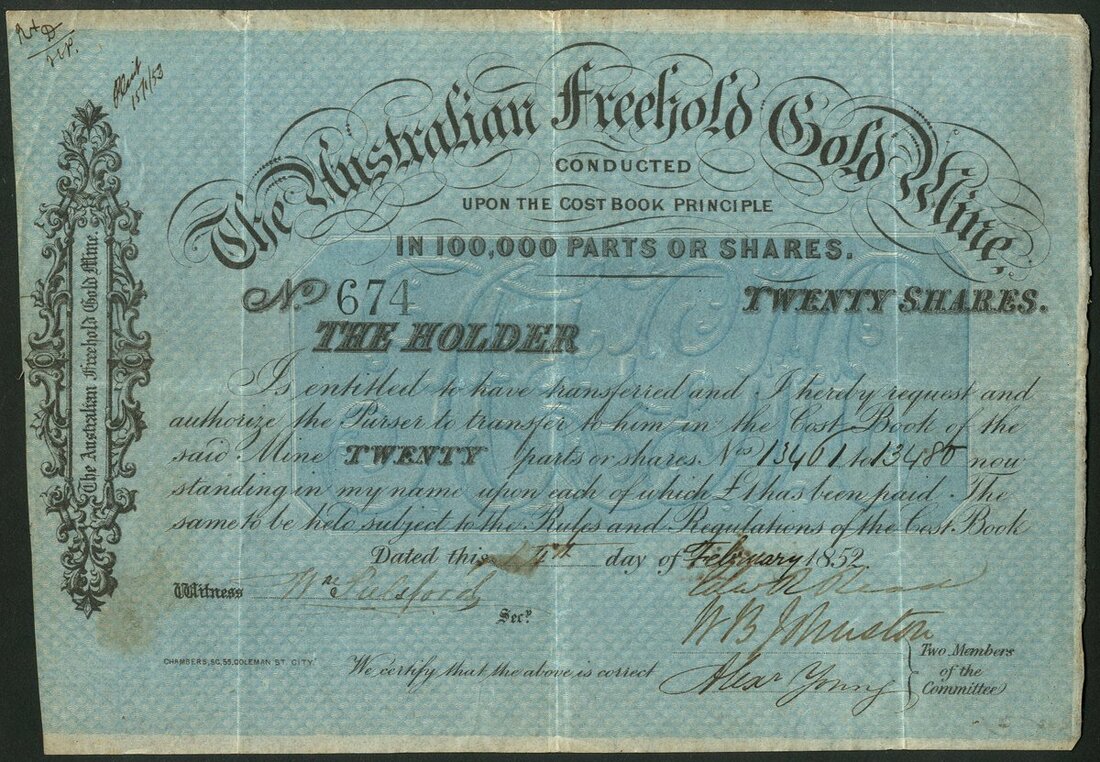 15/1/53
The Australian Freehold Gold Mine
The Australian Freehold Gold Mine,
CONDUCTED
UPON THE COST BOOK PRINCIPLE
IN 100,000 PARTS OR SHARES.
No. 674 TWENTY SHARES.
THE HOLDER
Is entitled to have transferred and I hereby request and
authorize the Purser to transfer to him in the Cost Book of the
said Mine TWENTY parts or shares Nos 13461 to 13480 now
standing in my name upon each of which £1 has been paid. The
same to be held subject to the Rules and Regulations of the Cost Book
Dated this day of February 1852
Witness Wm
Secy.
W B Johnston
Two Members
of the
Committee
CHAMBERS, SC, 55, COLEMAN ST. CITY.
We certify that the above is correct Alexr Young